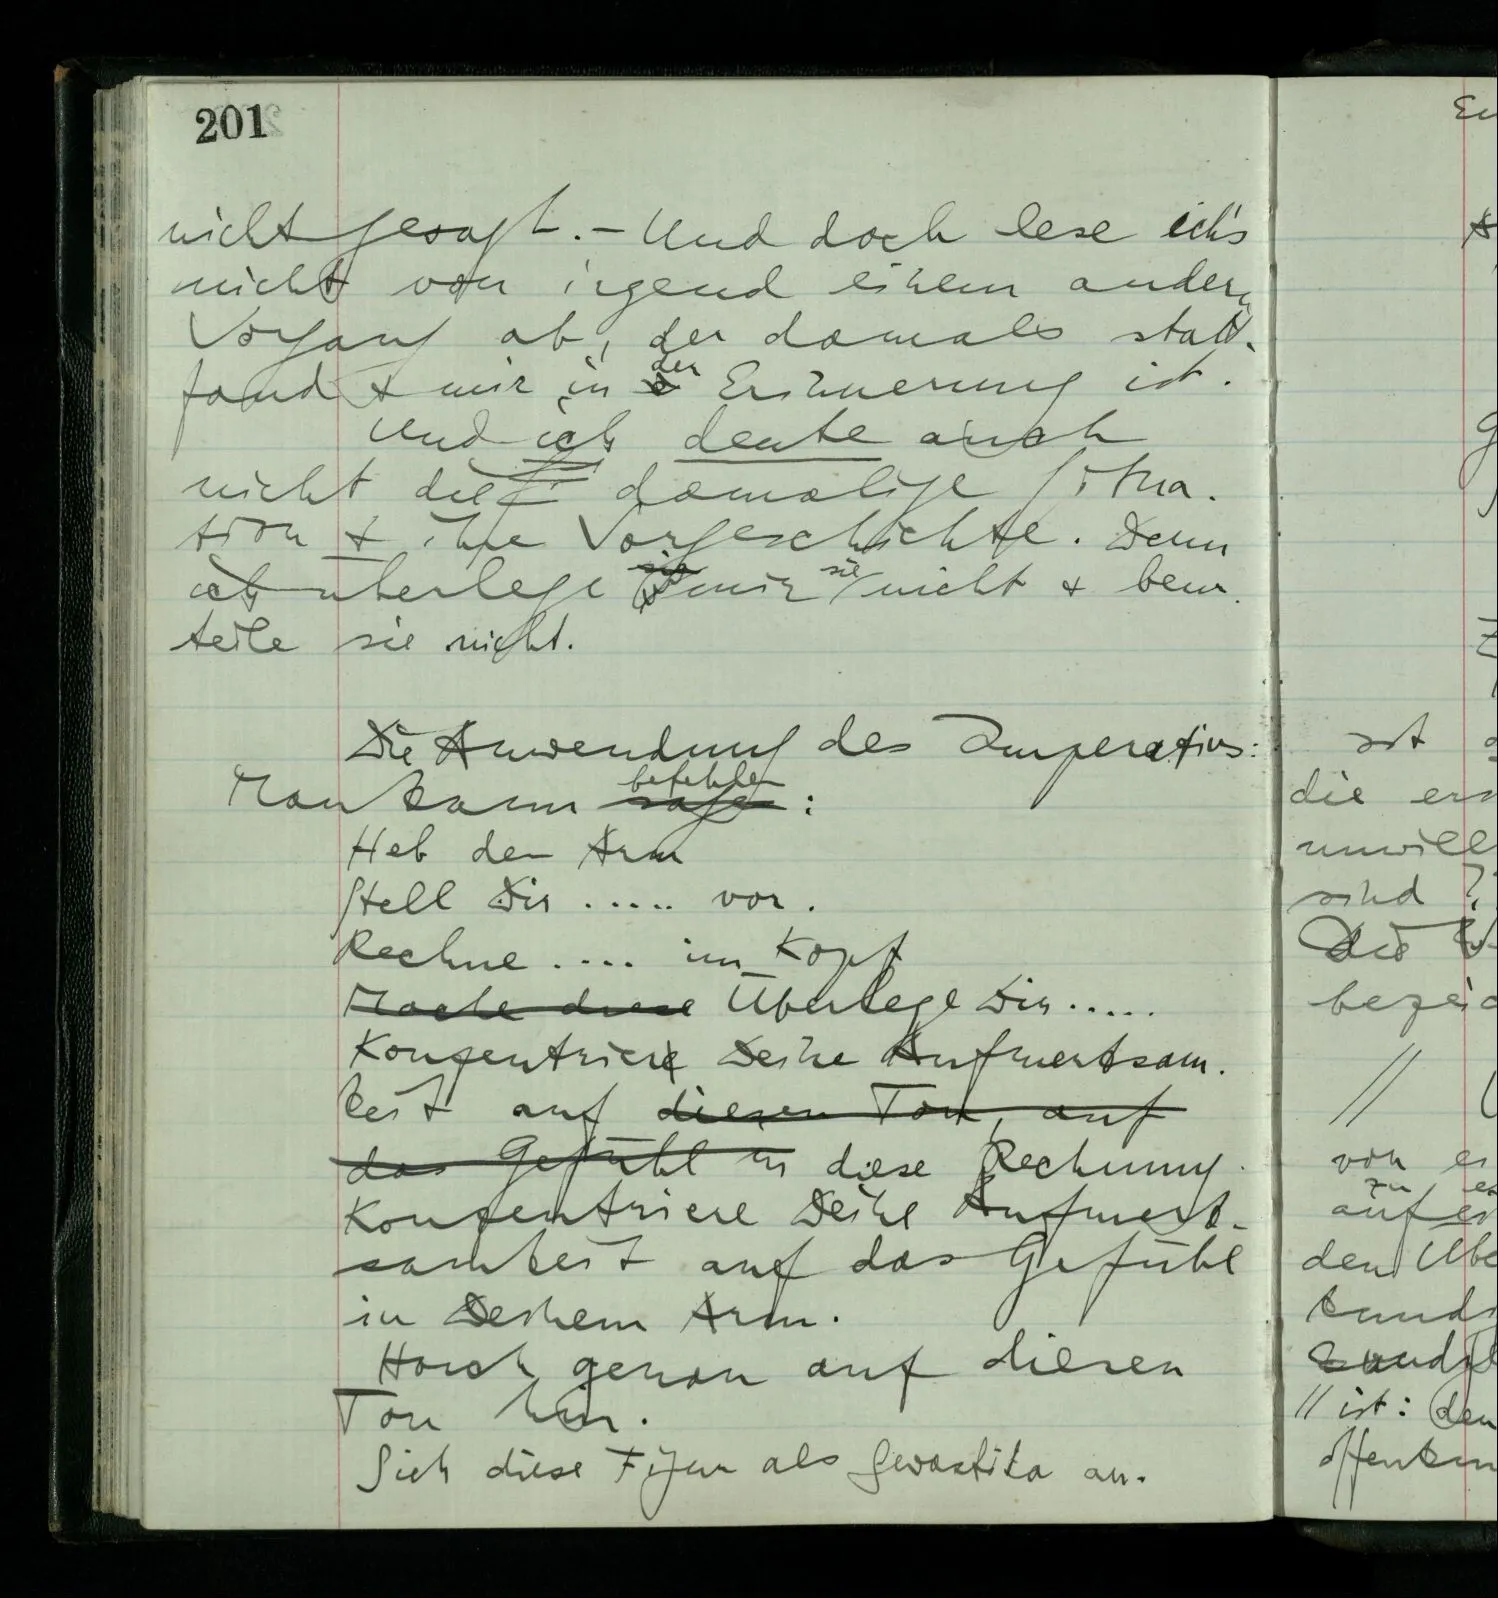 201
nicht gesagt. – Und doch lese ich's
nicht von irgend einem andern
Vorgang ab, der damals statt-
fand & mir in der Erinnerung ist.
Und ich deute auch
nicht die damalige Situa-
tion & ihre Vorgeschichte. Denn
ich überlege mir sie nicht & beur-
teile sie nicht.
Die Anwendung des Imperativs:
Man kann sagen befehlen:
Heb den Arm
Stell Dir ..... vor.
Rechne .... im Kopf
Mache diese Überlege Dir .....
Konzentriere Deine Aufmerksam-
keit auf diesen Ton, auf
das Gefühl in diese Rechnung.
Konzentriere Deine Aufmerk-
samkeit auf das Gefühl
in Deinem Arm.
Horch genau auf diesen
Ton hin.
Sieh diese Figur als Swastika an.
ist
die
unwill
sind ?
Die
bezeic
//
von
zu
auf
den Übe
// ist: den
offenkun